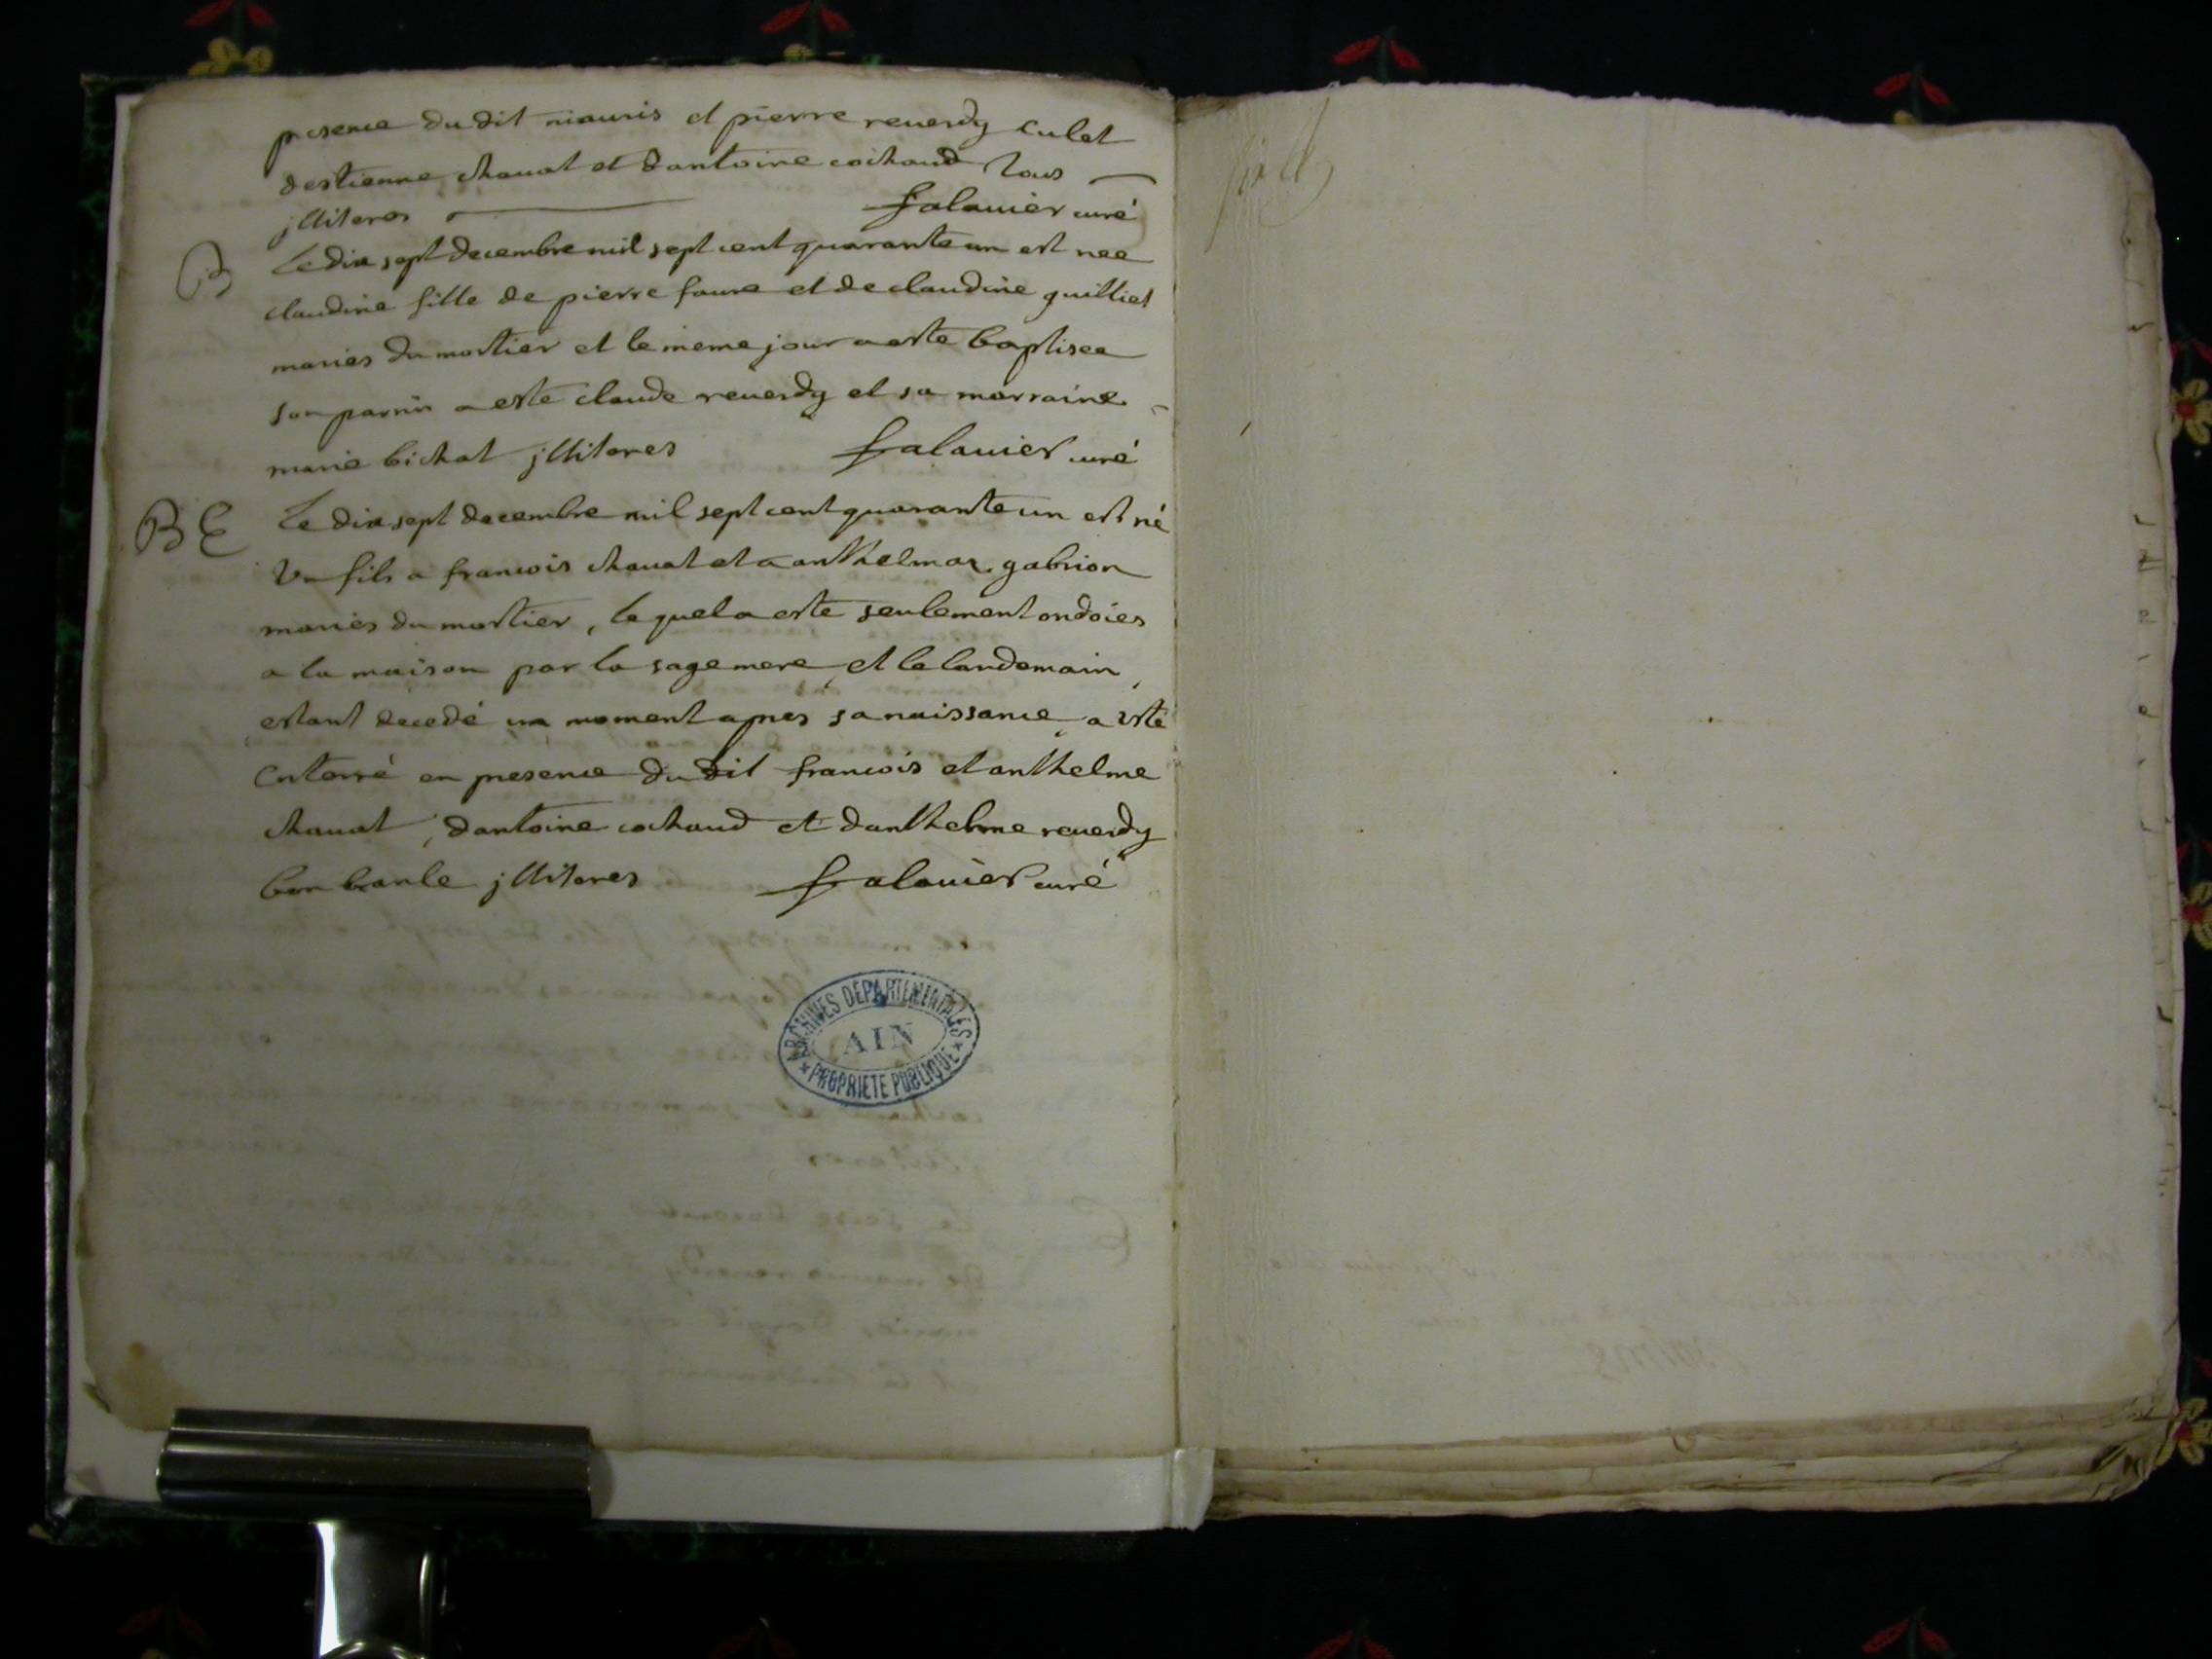 presence du dit mauris et pierre reuerdy culet
destienne chauat et dantoine cochaud tous
jlliteres falauier curé
B Le dix sept decembre mil sept cent quarante un est nee
claudine fille de pierre faure et de claudine guilliet
maries du mortier et le meme jour a este baptisee
son parrin a este claude reuerdy et sa marraine
marie bichat jlliteres falauier curé
BE Le dix sept decembre mil sept cent quarante un est né
Un fils a francois chauat et a anthelmaz gabrion
maries du mortier, le quel a este seulement ondoies
a la maison par la sage mere, et le landemain,
estant decedé un moment apres sa naissance, a esté
Enterré en presence du dit francois et anthelme
chauat, dantoine cochaud et danthelme reuerdy
bon branle jlliteres falauier curé
ARCHIVES DEPARTEMENTALES
AIN
* PROPRIETE PUBLIQUE *